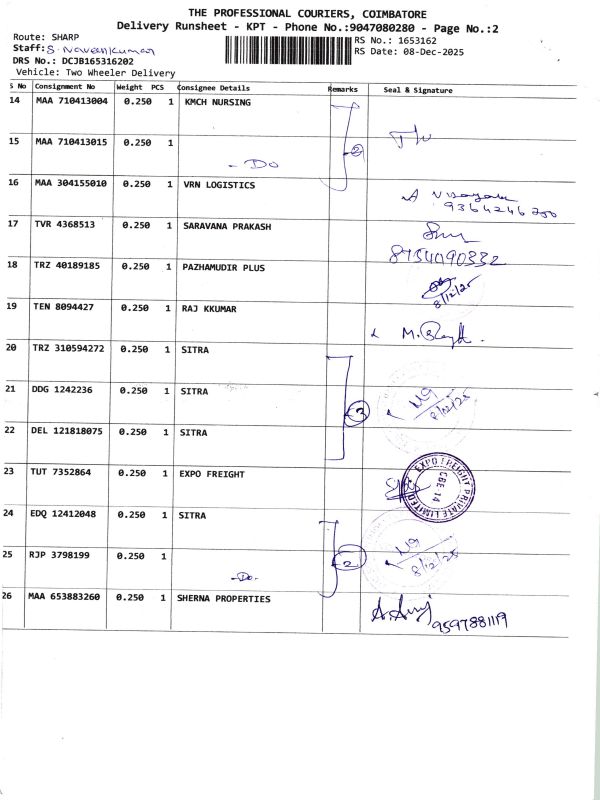 THE PROFESSIONAL COURIERS, COIMBATORE
Delivery Runsheet - KPT - Phone No.:9047080280 - Page No.:2
Route: SHARP
RS No.: 1653162
Staff: S. Naveenkumar
RS Date: 08-Dec-2025
DRS No.: DCJB165316202
Vehicle: Two Wheeler Delivery
S No Consignment No Weight PCS Consignee Details Remarks Seal & Signature
14 MAA 710413004 0.250 1 KMCH NURSING
15 MAA 710413015 0.250 1
- Do 2
16 MAA 304155010 0.250 1 VRN LOGISTICS
9364246200
17 TVR 4368513 0.250 1 SARAVANA PRAKASH
8754090332
18 TRZ 40189185 0.250 1 PAZHAMUDIR PLUS
8/12/25
19 TEN 8094427 0.250 1 RAJ KKUMAR
20 TRZ 310594272 0.250 1 SITRA
21 DDG 1242236 0.250 1 SITRA
3 8/12/25
22 DEL 121818075 0.250 1 SITRA
23 TUT 7352864 0.250 1 EXPO FREIGHT
EXPO FREIGHT PRIVATE LIMITED CBE 14
24 EDQ 12412048 0.250 1 SITRA
25 RJP 3798199 0.250 1
-Do- 2 8/12/25
26 MAA 653883260 0.250 1 SHERNA PROPERTIES
9597881119